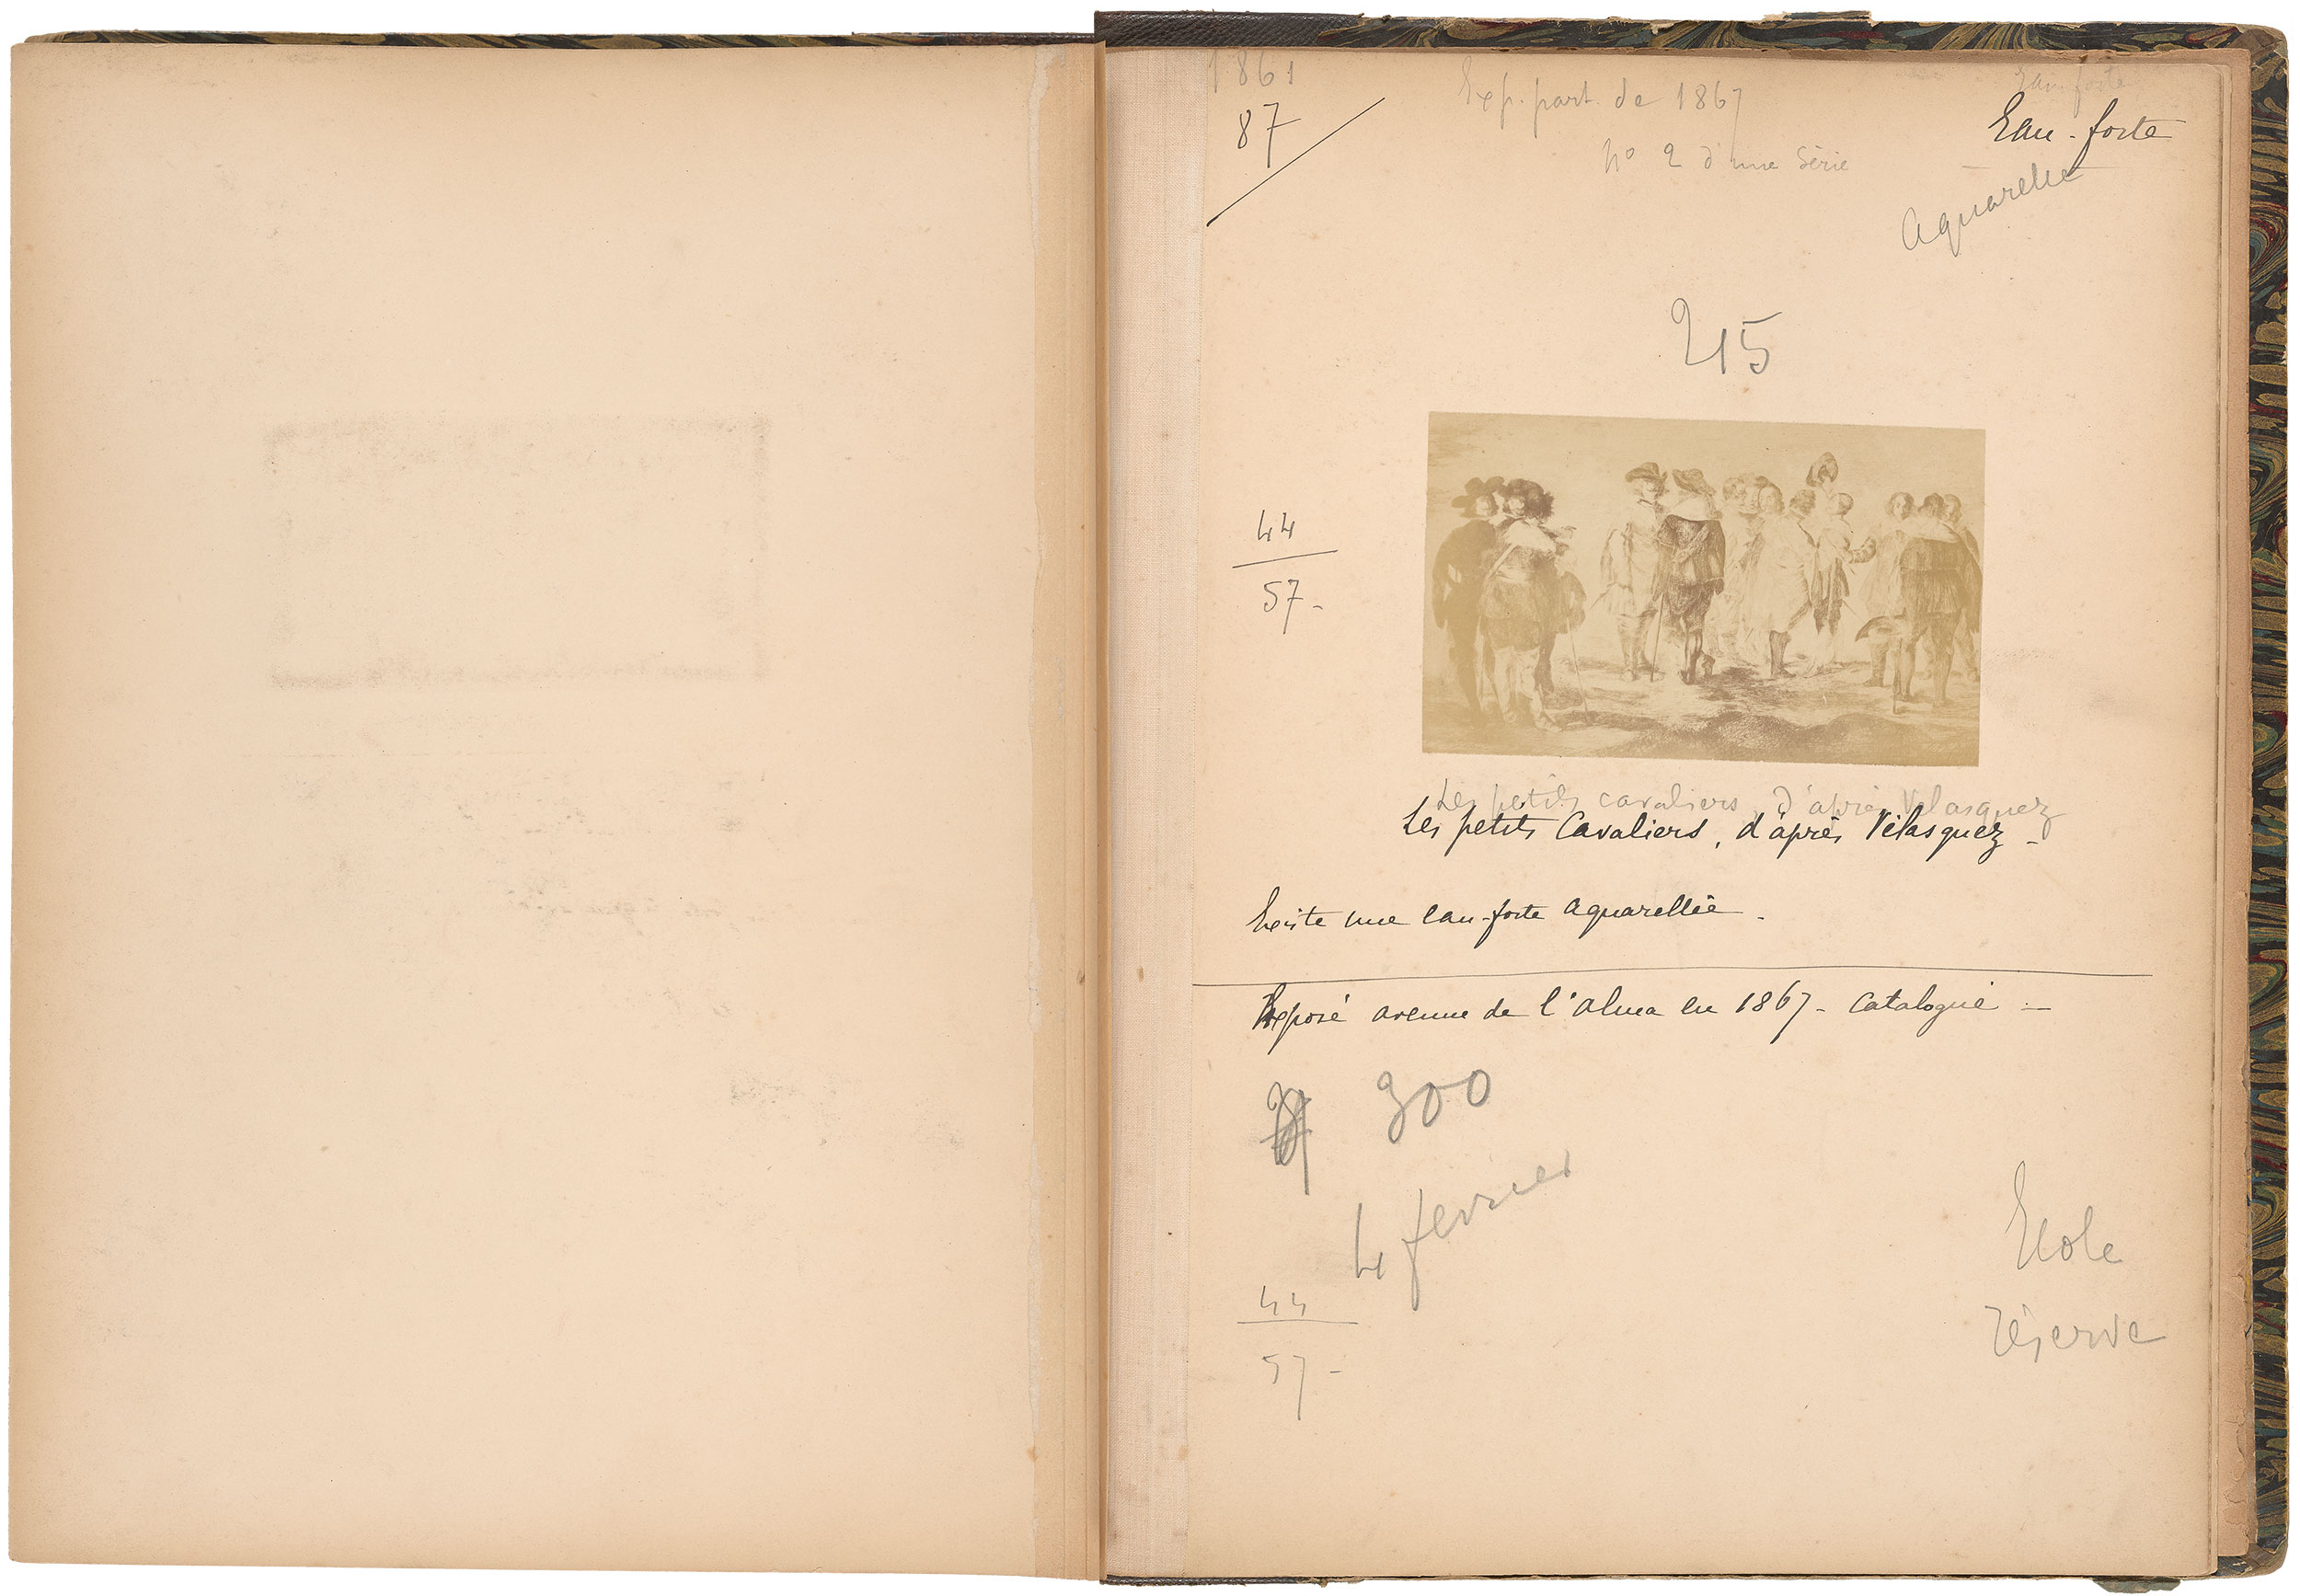 1861
Exp. part. de 1867
Eau forte
87
Eau-forte
Nº 2 d'une Série
Aquarelle
215
44
57-
Les petits cavaliers, d'après Velasquez
Les petits Cavaliers, d'après Vélasquez-
Existe une eau-forte aquarellée-
Exposé avenue de l'alma en 1867- Catalogué-
300
4 février
Ecole
réserve
44
57-